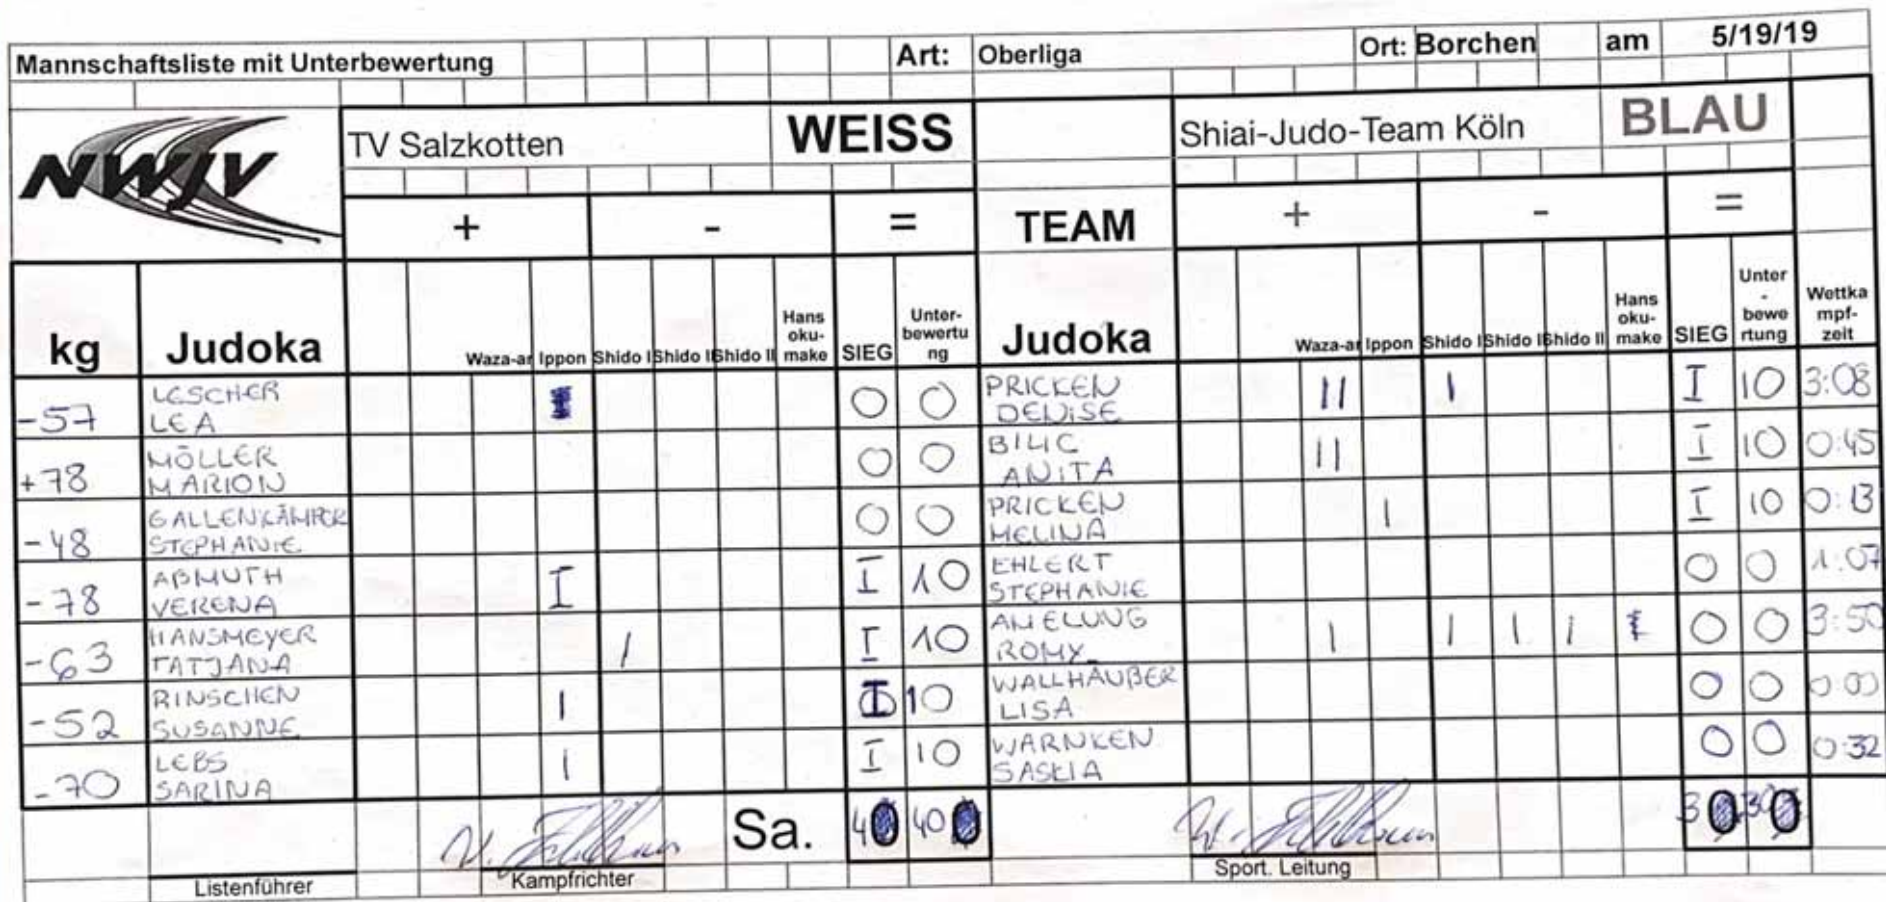 Mannschaftsliste mit Unterbewertung Art: Oberliga Ort: Borchen am 5/19/19
NWJV TV Salzkotten WEISS Shiai-Judo-Team Köln BLAU
+ - = TEAM + - =
kg Judoka Waza-ar Ippon Shido I Shido II Shido II Hans oku- make SIEG Unter- bewertu ng Judoka Waza-ar Ippon Shido I Shido II Shido II Hans oku- make SIEG Unter - bewe rtung Wettka mpf- zeit
-57 LESCHER LEA 0 0 PRICKEN DENISE II I I 10 3:08
+78 MÖLLER MARION 0 0 BILIC ANITA II I 10 0:45
-48 GALLENKÄMPER STEPHANIE 0 0 PRICKEN MELINA I I 10 0:13
-78 ABMUTH VERENA I I 10 EHLERT STEPHANIE 0 0 1:07
-63 HANSMEYER TATJANA I I 10 AMELUNG ROMY I I I I 0 0 3:50
-52 RINSCHEN SUSANNE I I 10 WALLHÄUßER LISA 0 0 0:00
-70 LEBS SARINA I I 10 WARNKEN SASKIA 0 0 0:32
Sa. 4 40 3 30
Listenführer Kampfrichter Sport. Leitung